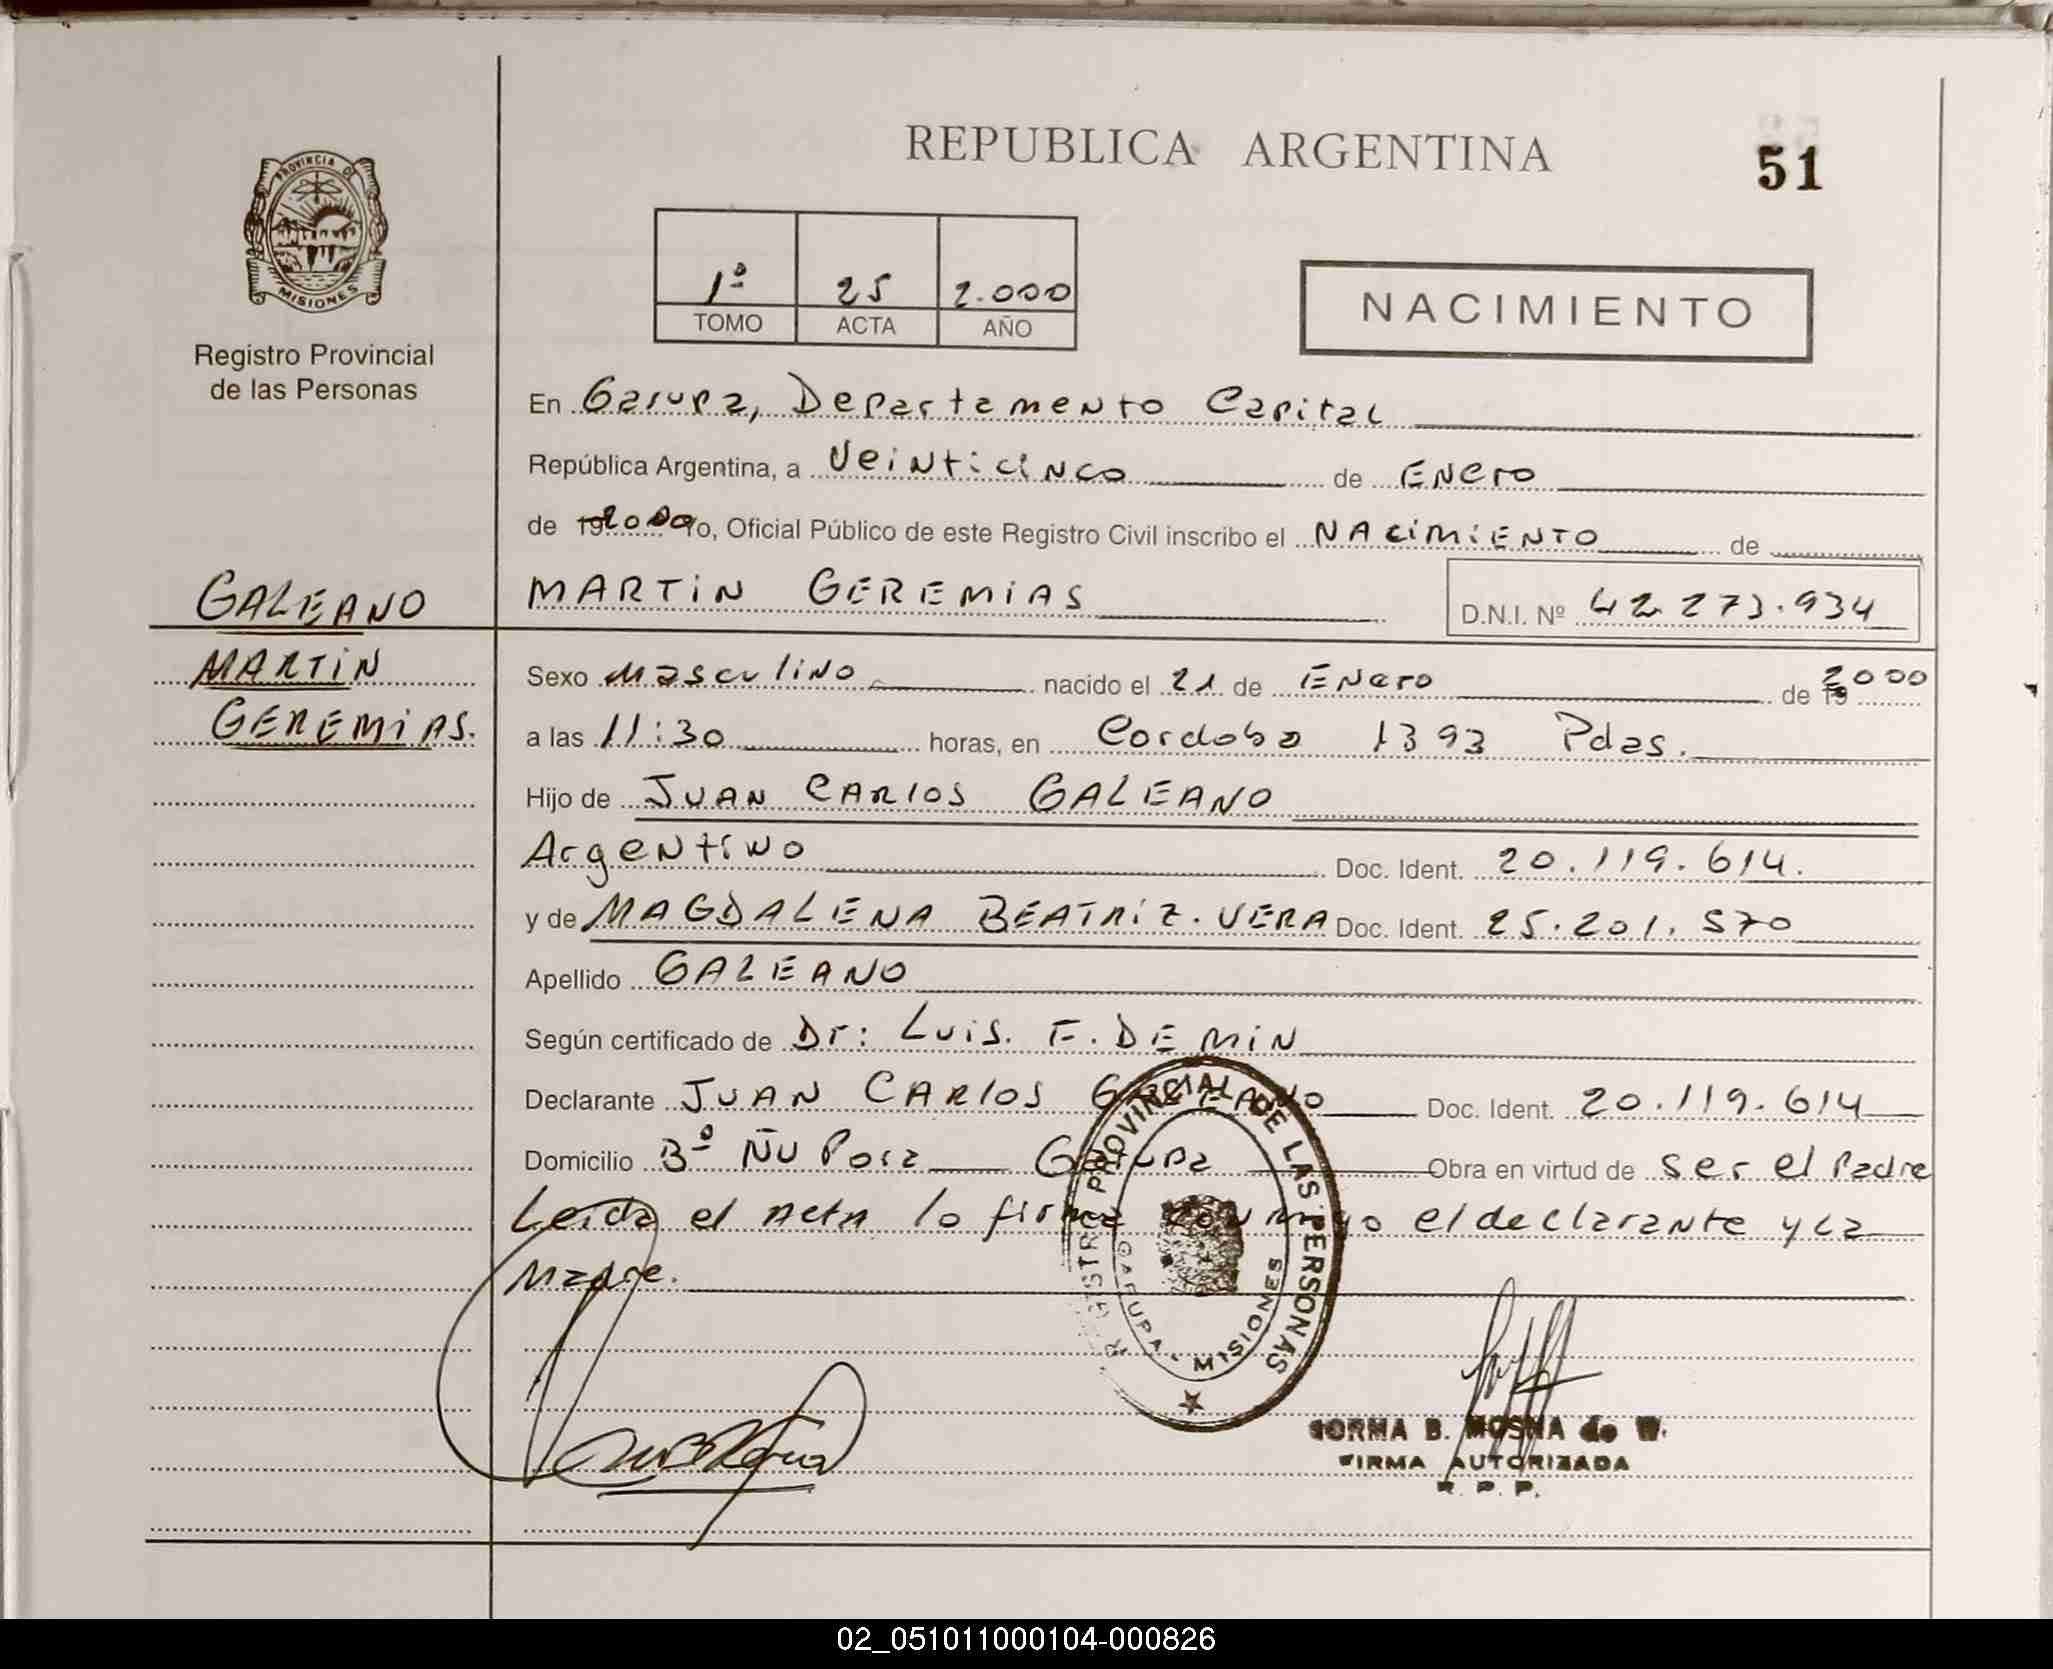 REPUBLICA ARGENTINA
51
PROVINCIA DE
MISIONES
Registro Provincial
de las Personas
1º 25 2.000
TOMO ACTA AÑO
NACIMIENTO
En Garupa, Departamento Capital
República Argentina, a Veinticinco de Enero
de 2000 yo, Oficial Público de este Registro Civil inscribo el NACIMIENTO de
GALEANO
MARTIN GEREMIAS D.N.I. Nº 42.273.934
MARTIN
GEREMIAS.
Sexo Masculino nacido el 21 de Enero de 2000
a las 11:30 horas, en Cordoba 1393 Pdas.
Hijo de JUAN CARLOS GALEANO
Argentino Doc. Ident. 20.119.614.
y de MAGDALENA BEATRIZ. VERA Doc. Ident. 25.201.570
Apellido GALEANO
Según certificado de Dr: Luis. F. DEMIN
Declarante JUAN CARLOS GALEANO Doc. Ident. 20.119.614
Domicilio Bº ÑU Pora Garupa Obra en virtud de ser el Padre
Leida el Acta lo firma conmigo el declarante y la
Madre.
REGISTRO PROVINCIAL DE LAS PERSONAS
GARUPA - MISIONES
NORMA B. MOSNA de W.
FIRMA AUTORIZADA
R. P. P.
02_051011000104-000826